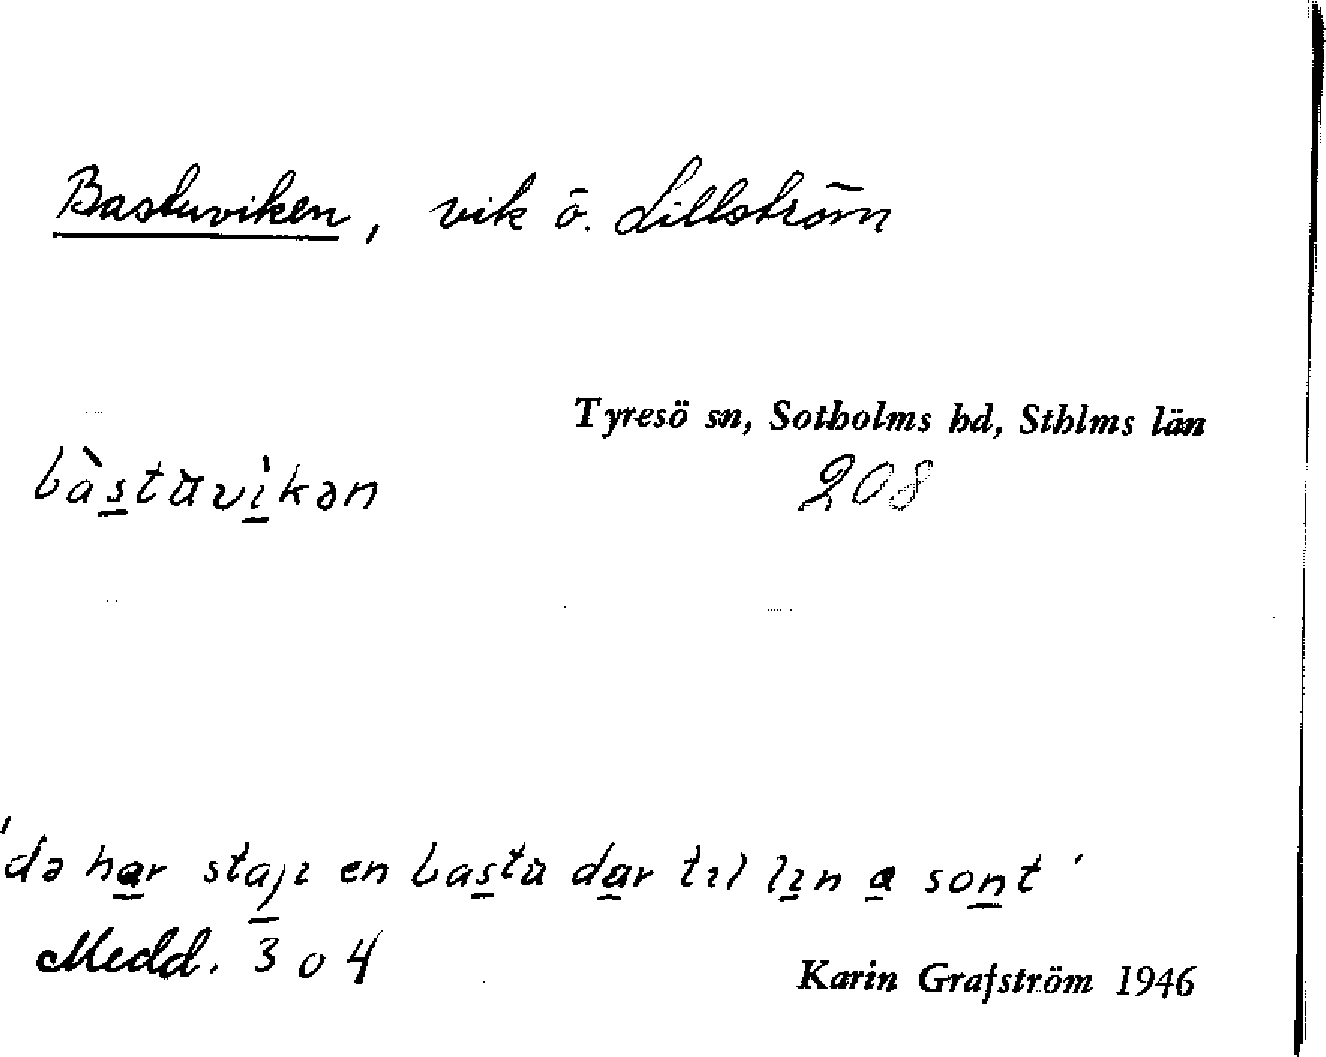 Bastuviken, vik ö. Lillström
Tyresö sn, Sotholms hd, Sthlms län
bàstuvìkən 208
'də har staɲɪ en bastu dar tɪl lɪn a sont'
Medd. 3 o 4
Karin Grafström 1946